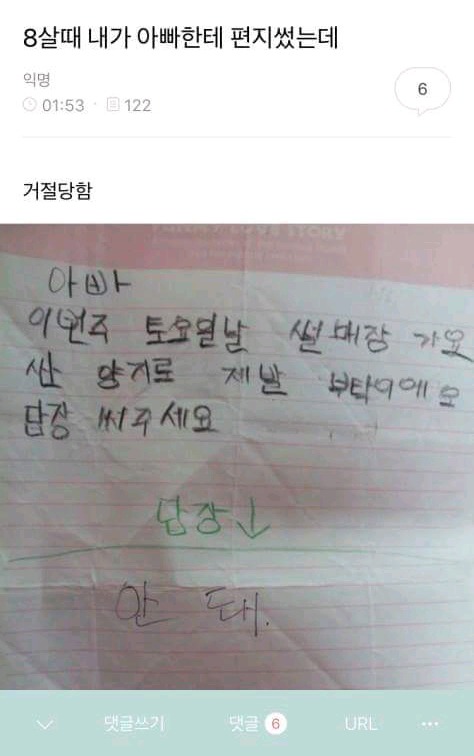 8살때 내가 아빠한테 편지썼는데
익명
01:53 · 122
6
거절당함
LOVE STORY
아빠
이번주 토요일날 썰매장 가요
산 양지로 제발 부탁이에요
답장 써주세요
답장↓
안 돼.
댓글쓰기 댓글 6 URL ···